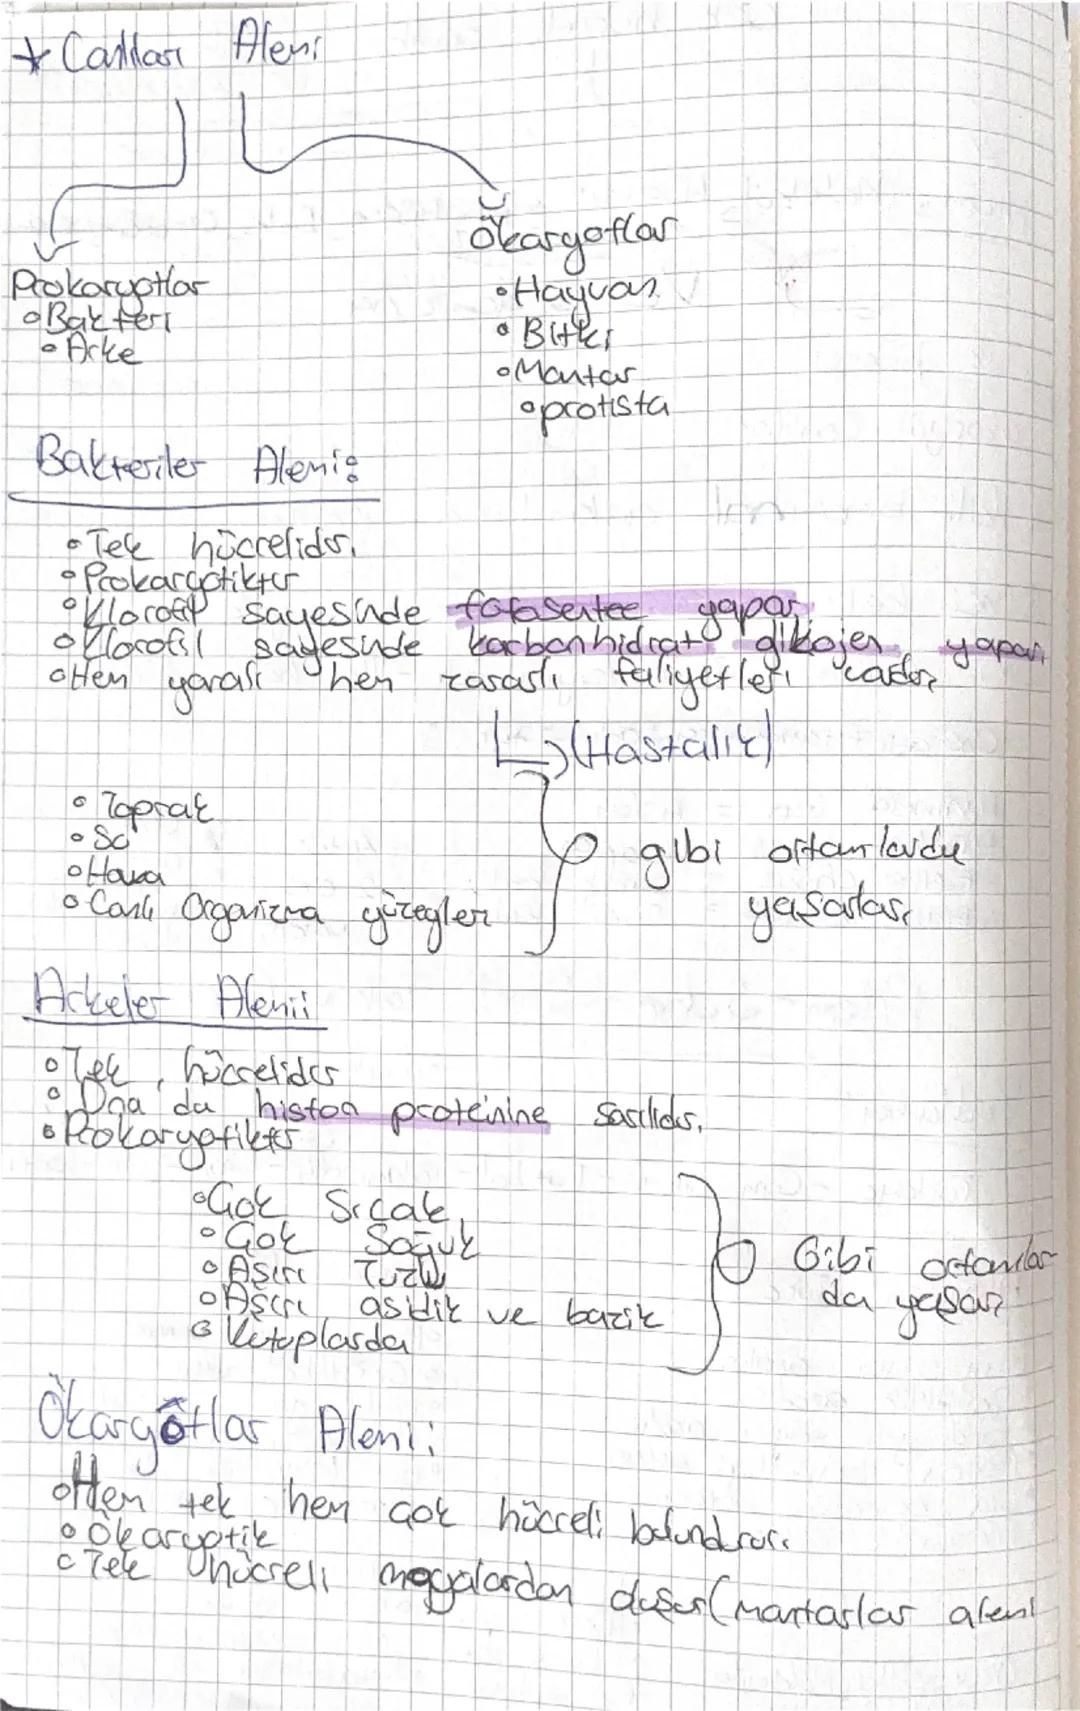 * Canlılar Alemi
Prokaryotlar
• Bakteri
• Arke
Ökaryotlar
• Hayvan
• Bitki
• Mantar
• protista
Bakteriler Alemi:
• Tek hücrelidir.
• Prokaryotiktir
• Klorofil sayesinde fotosentez yapar.
• Klorofil sayesinde karbonhidrat glikojen yapar.
• Hem yararlı hem zararlı faliyetleri vardır.
↳ (Hastalık)
• Toprak
• Su
• Hava
• Canlı Organizma yüzeyler
gibi ortamlarda
yaşarlar.
Arkeler Alemi:
• Tek hücrelidir
• Dna da histon proteinine sarılıdır.
• Prokaryotiktir
• Çok Sıcak
• Çok Soğuk
• Aşırı Tuzlu
• Aşırı asidik ve bazik
Gibi ortamlar
da yaşar
Ökaryotlar Alemi:
• Hem tek hem çok hücreli bulundurur.
• Ökaryotik
• Tek hücreli (mantarlar alemi